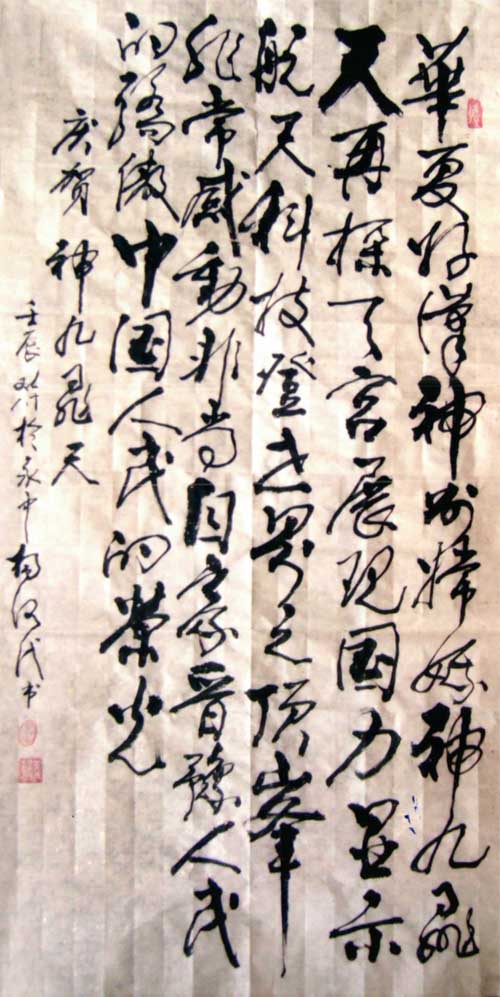 華夏好漢神州嫦娥神九飛
天再探天宫展现国力显示
航天科技登世界之顶峯
非常感動非常自豪晋豫人民
的驕傲中国人民的荣光
庆贺神九飛天
壬辰於永中书